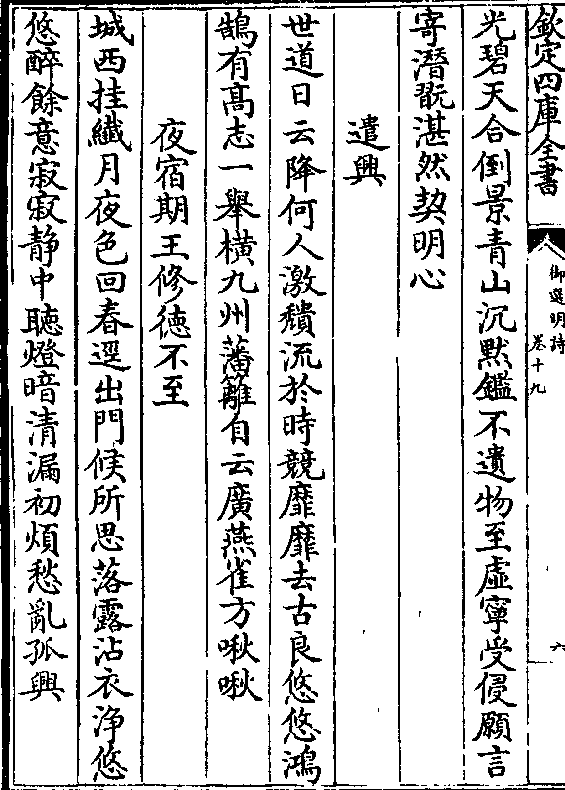 欽定四庫全書
御選明詩
卷十九
六
光碧天合倒景青山沉默鑑不遺物至虛寧受侵願言
寄潛翫湛然契明心
遣興
世道日云降何人激穨流於時競靡靡去古良悠悠鴻
鵠有髙志一舉橫九州藩籬自云廣燕雀方啾啾
夜宿期王修德不至
城西挂纖月夜色回春逕出門候所思落露沾衣浄悠
悠醉餘意寂寂静中聽燈暗清漏初煩愁亂孤興